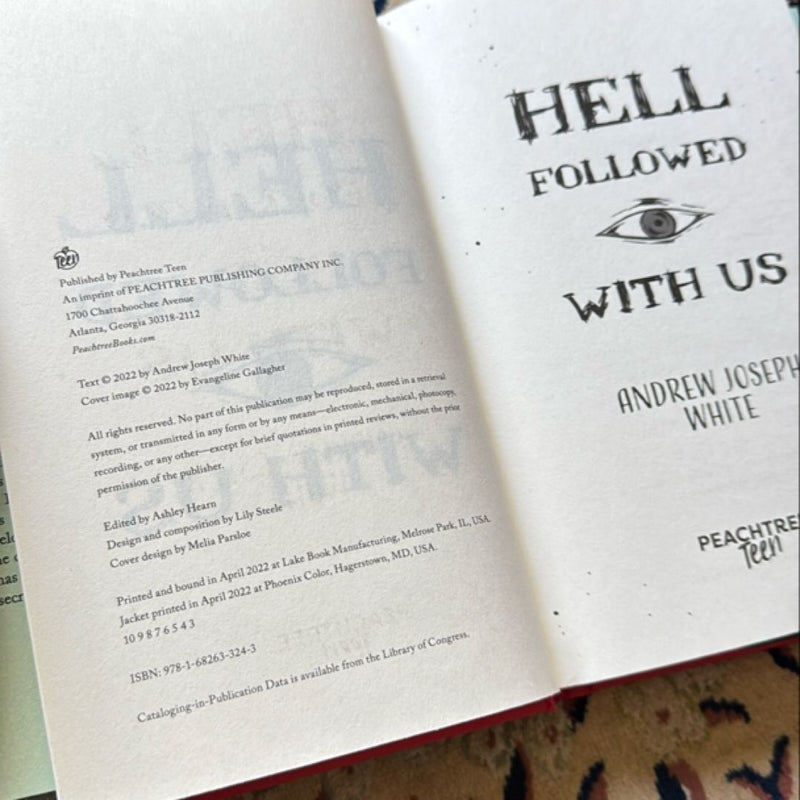 Teen
Published by Peachtree Teen
An imprint of PEACHTREE PUBLISHING COMPANY INC.
1700 Chattahoochee Avenue
Atlanta, Georgia 30318-2112
PeachtreeBooks.com
Text © 2022 by Andrew Joseph White
Cover image © 2022 by Evangeline Gallagher
All rights reserved. No part of this publication may be reproduced, stored in a retrieval
system, or transmitted in any form or by any means—electronic, mechanical, photocopy,
recording, or any other—except for brief quotations in printed reviews, without the prior
permission of the publisher.
Edited by Ashley Hearn
Design and composition by Lily Steele
Cover design by Melia Parsloe
Printed and bound in April 2022 at Lake Book Manufacturing, Melrose Park, IL, USA.
Jacket printed in April 2022 at Phoenix Color, Hagerstown, MD, USA.
10 9 8 7 6 5 4 3
ISBN: 978-1-68263-324-3
Cataloging-in-Publication Data is available from the Library of Congress.
HELL
FOLLOWED
WITH US
ANDREW JOSEPH
WHITE
PEACHTREE
Teen